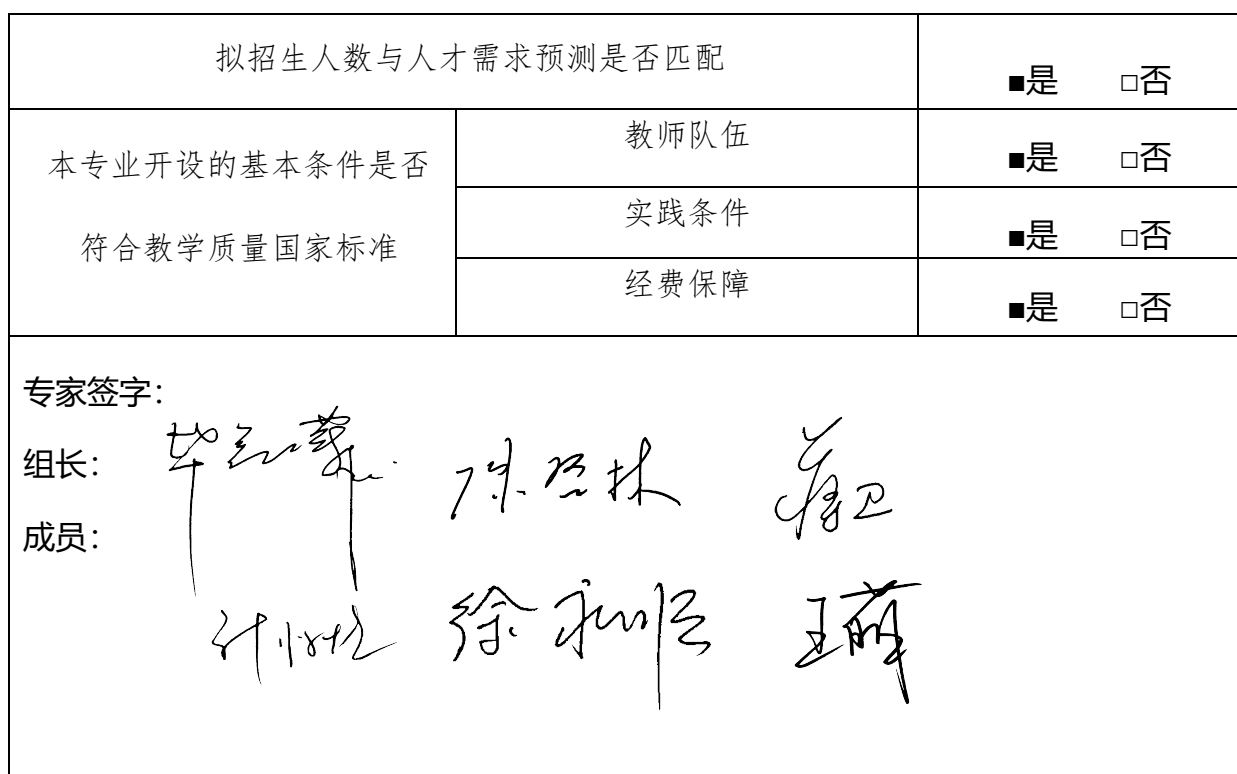 拟招生人数与人才需求预测是否匹配 ■是 □否
本专业开设的基本条件是否
符合教学质量国家标准
教师队伍 ■是 □否
实践条件 ■是 □否
经费保障 ■是 □否
专家签字：
组长：
成员：
蒋卫
徐
王